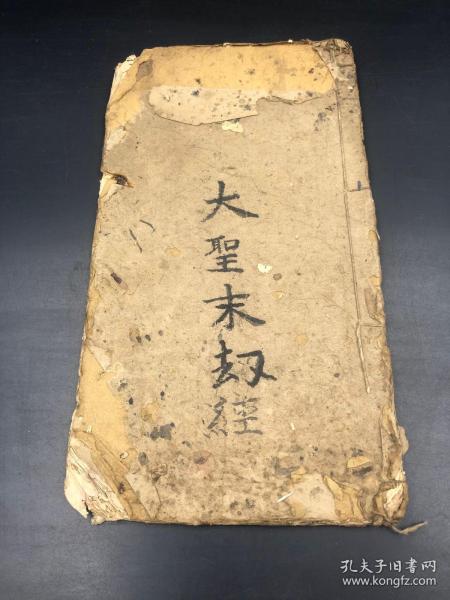 大聖末刼經
孔夫子旧书网
www.kongfz.com